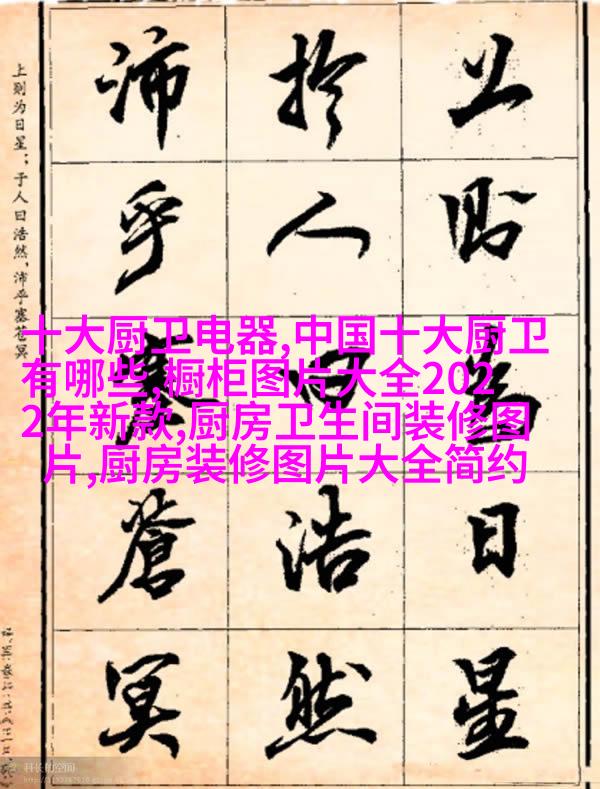 上則為日星
於人曰浩然
沛乎塞蒼冥
上则为日星；于人曰浩然，沛乎塞苍冥
十大厨卫电器,中国十大厨卫
有哪些,橱柜图片大全202
2年新款,厨房卫生间装修图
片,厨房装修图片大全简约
科长的空间